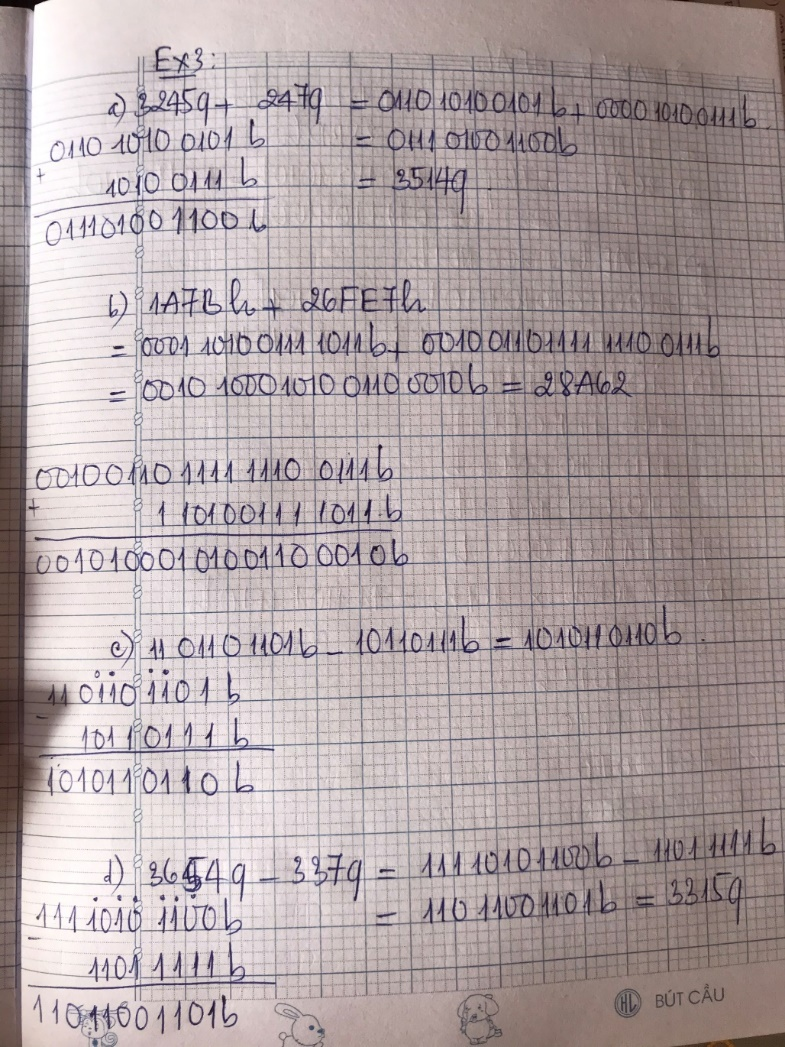 Ex3:
a) 3245q + 247q = 011010100101b + 000010100111b.
0110 1010 0101 b = 011101001100b
+
1010 0111 b = 3514q.
011101001100b
b) 1A7Bh + 26FE7h
= 0001 1010 0111 1011b + 0010 0110 1111 1110 0111b
= 0010 1000 1010 0110 0010b = 28A62
0010 0110 1111 1110 0111b
+
1 1010 0111 1011b
00101000101001100010b
c) 11 0110 1101b - 10110111b = 1010110110b.
11 0110 1101b
-
1011 0111b
1010110110b
d) 3654q - 337q = 11110101100b - 11011111b
11110101100b = 11011001101b = 3315q
-
11011111b
11011001101b
HL BÚT CẨU